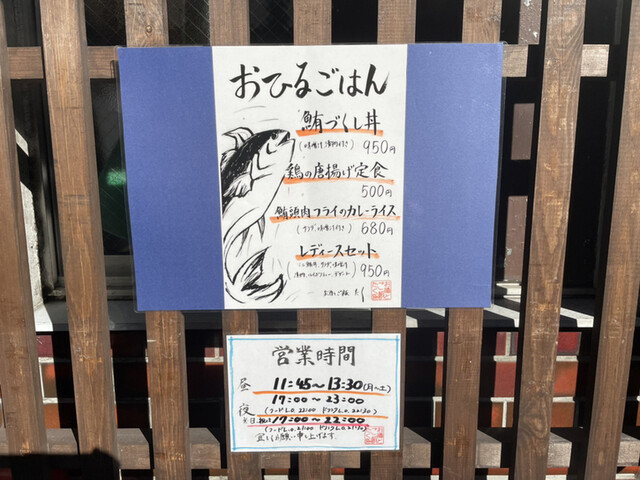 おひるごはん
鮪づくし丼
(味噌汁、漬物付き) 950円
鶏の唐揚げ定食
500円
鮪頭肉フライのカレーライス
(サラダ・味噌汁付き) 680円
レディースセット
950円
営業時間
昼 11:45〜13:30(月〜土)
夜 17:00〜23:00
(フードL.O.22:00 ドリンクL.O.22:30)
※日、祝い17:00〜22:00
(フードL.O.21:00 ドリンクL.O.21:30)
宜しくお願い申し上げます